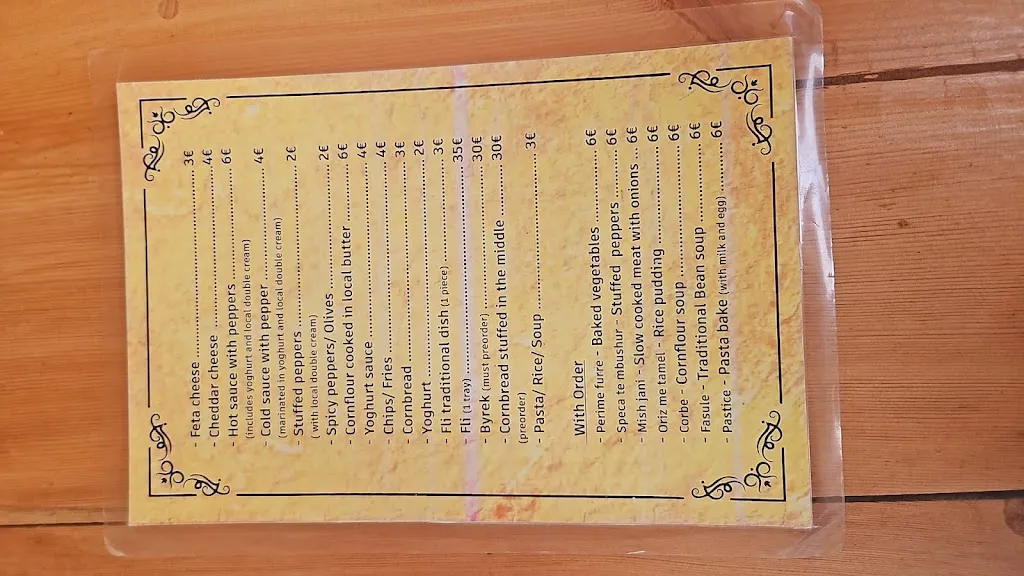 - Feta cheese ........ 3€
- Cheddar cheese ........ 4€
- Hot sauce with peppers ........ 6€
(includes yoghurt and local double cream)
- Cold sauce with pepper ........ 4€
(marinated in yoghurt and local double cream)
- Stuffed peppers ........ 2€
( with local double cream)
- Spicy peppers/ Olives ........ 2€
- Cornflour cooked in local butter ........ 6€
- Yoghurt sauce ........ 4€
- Chips/ Fries ........ 4€
- Cornbread ........ 3€
- Yoghurt ........ 2€
- Fli traditional dish (1 piece) ........ 3€
- Fli (1 tray) ........ 35€
- Byrek (must preorder) ........ 30€
- Cornbread stuffed in the middle ........ 30€
(preorder)
- Pasta/ Rice/ Soup ........ 3€
With Order
- Perime furre - Baked vegetables ........ 6€
- Speca te mbushur - Stuffed peppers ........ 6€
- Mish jani - Slow cooked meat with onions ... 6€
- Oriz me tamel - Rice pudding ........ 6€
- Corbe - Cornflour soup ........ 6€
- Fasule - Traditional Bean soup ........ 6€
- Pastice - Pasta bake (with milk and egg) ........ 6€